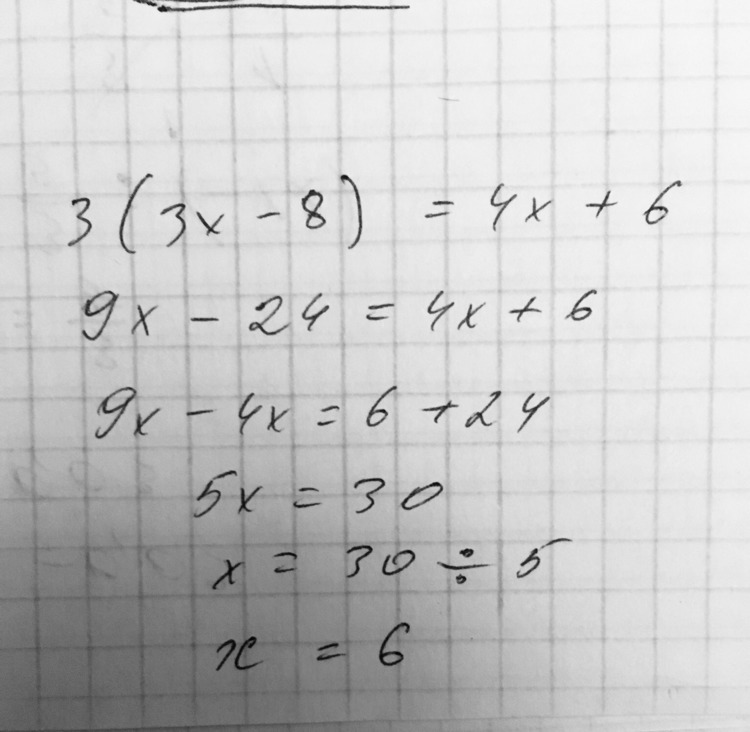 3(3x - 8) = 4x + 6
9x - 24 = 4x + 6
9x - 4x = 6 + 24
5x = 30
x = 30 ÷ 5
x = 6